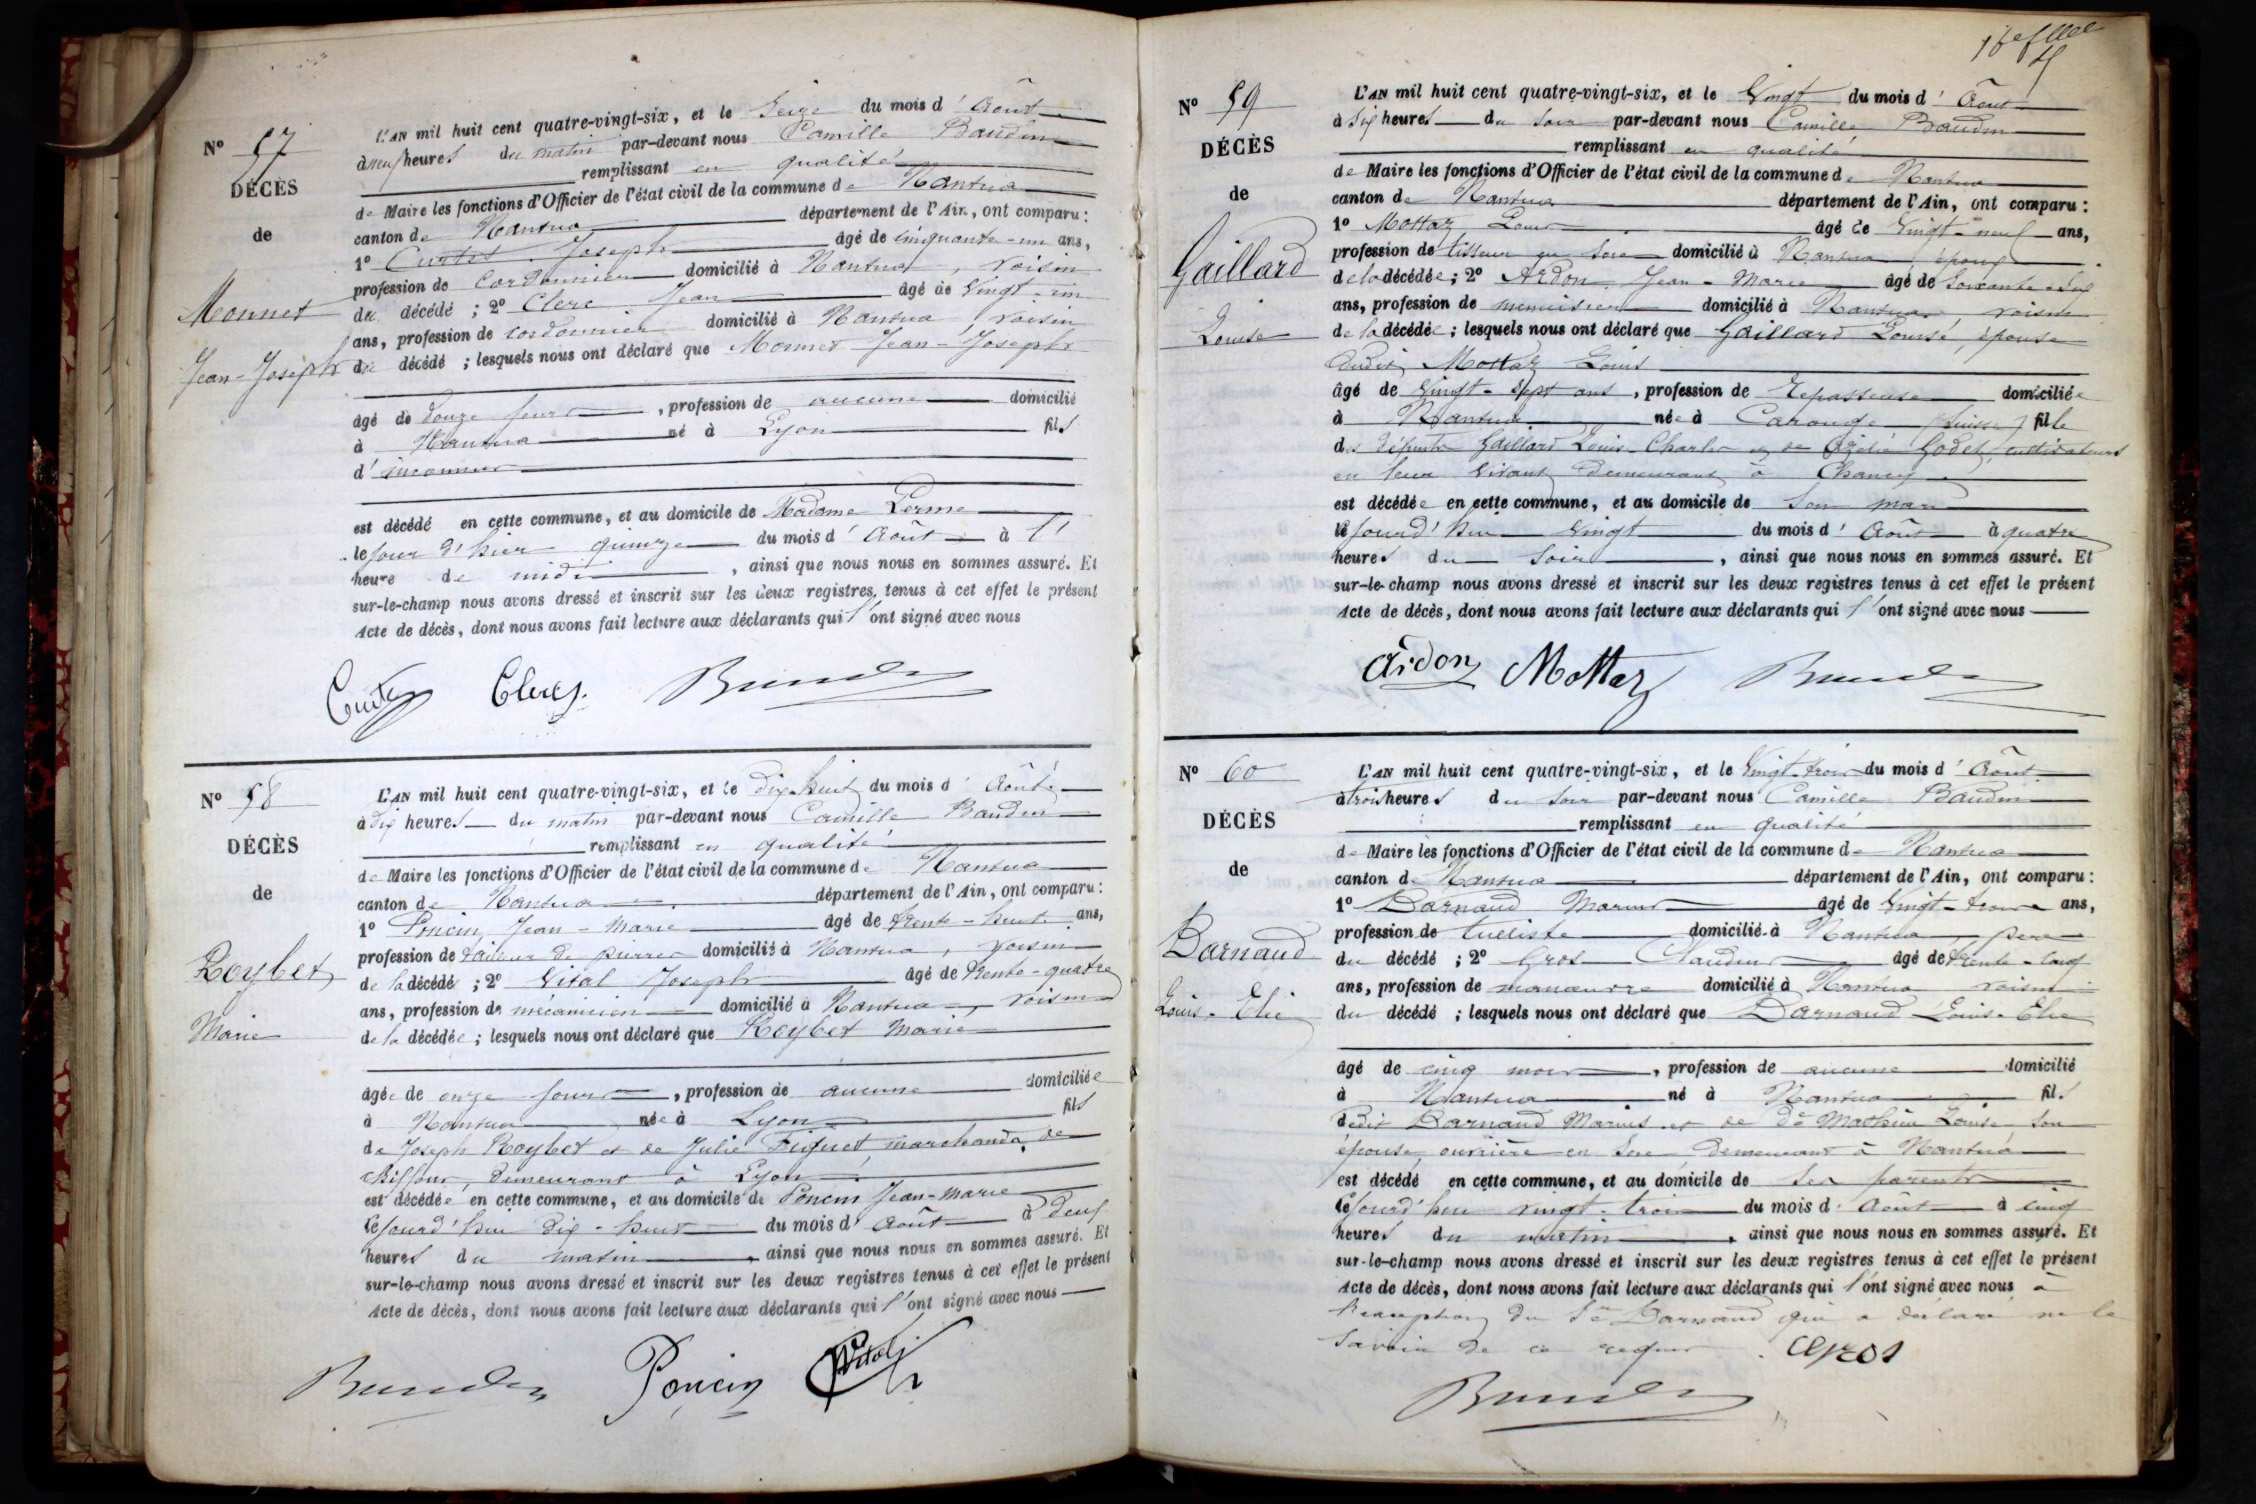 Nº 57
DÉCÈS
de
Monnet
Jean-Joseph
L'AN mil huit cent quatre-vingt-six, et le Seize du mois d'Août
à neuf heures du matin par-devant nous Camille Baudin
remplissant en qualité
de Maire les fonctions d'Officier de l'état civil de la commune de Nantua
canton de Nantua département de l'Ain, ont comparu :
1º Curtet Joseph âgé de cinquante-un ans,
profession de Cordonnier domicilié à Nantua, voisin
du décédé ; 2º Clerc Jean âgé de Vingt-un
ans, profession de cordonnier domicilié à Nantua voisin
du décédé ; lesquels nous ont déclaré que Monnet Jean-Joseph
âgé de douze jours, profession de aucune domicilié
à Nantua né à Lyon fils
d'inconnus
est décédé en cette commune, et au domicile de Madame Perme
le jour d'hier quinze du mois d'Août à l'
heure de midi, ainsi que nous nous en sommes assuré. Et
sur-le-champ nous avons dressé et inscrit sur les deux registres tenus à cet effet le présent
Acte de décès, dont nous avons fait lecture aux déclarants qui l'ont signé avec nous
Clerc
Nº 58
DÉCÈS
de
Roybet
Marie
L'AN mil huit cent quatre-vingt-six, et le dix-huit du mois d'Août
à dix heures du matin par-devant nous Camille Baudin
remplissant en qualité
de Maire les fonctions d'Officier de l'état civil de la commune de Nantua
canton de Nantua département de l'Ain, ont comparu :
1º Poncin Jean-Marie âgé de trente-huit ans,
profession de tailleur de pierres domicilié à Nantua, voisin
de la décédé ; 2º Vital Joseph âgé de trente-quatre
ans, profession de mécanicien domicilié à Nantua, voisin
de la décédée ; lesquels nous ont déclaré que Roybet Marie
âgée de onze jours, profession de aucune domiciliée
à Nantua née à Lyon fils
de Joseph Roybet et de Julie Fiquet, marchands de
chiffons, demeurant à Lyon
est décédée en cette commune, et au domicile de Poncin Jean-Marie
ce jourd'hui dix-huit du mois d'Août à deux
heures du matin, ainsi que nous nous en sommes assuré. Et
sur-le-champ nous avons dressé et inscrit sur les deux registres tenus à cet effet le présent
Acte de décès, dont nous avons fait lecture aux déclarants qui l'ont signé avec nous
Poncin Vital
Nº 59
DÉCÈS
de
Gaillard
Louise
L'AN mil huit cent quatre-vingt-six, et le Vingt du mois d'Août
à Six heures du Soir par-devant nous Camille Baudin
remplissant en qualité
de Maire les fonctions d'Officier de l'état civil de la commune de Nantua
canton de Nantua département de l'Ain, ont comparu :
1º Mottaz Louis âgé de Vingt-neuf ans,
profession de tisseur en soie domicilié à Nantua, époux
de la décédée ; 2º Ardon Jean-Marie âgé de Soixante-six
ans, profession de menuisier domicilié à Nantua, voisin
de la décédée ; lesquels nous ont déclaré que Gaillard Louise, épouse
dudit Mottaz Louis
âgé de Vingt-sept ans, profession de Repasseuse domiciliée
à Nantua née à Carouge (Suisse) fille
des défunts Gaillard Louis-Charles et de Godet, cultivateurs
en leur vivant demeurant à Chancy
est décédée en cette commune, et au domicile de son mari
ce jourd'hui Vingt du mois d'Août à quatre
heures du Soir, ainsi que nous nous en sommes assuré. Et
sur-le-champ nous avons dressé et inscrit sur les deux registres tenus à cet effet le présent
Acte de décès, dont nous avons fait lecture aux déclarants qui l'ont signé avec nous
Ardon Mottaz
Nº 60
DÉCÈS
de
Darnaud
Louis-Elie
L'AN mil huit cent quatre-vingt-six, et le Vingt-trois du mois d'Août
à trois heures du soir par-devant nous Camille Baudin
remplissant en qualité
de Maire les fonctions d'Officier de l'état civil de la commune de Nantua
canton de Nantua département de l'Ain, ont comparu :
1º Darnaud Marius âgé de Vingt-trois ans,
profession de tulliste domicilié à Nantua père
du décédé ; 2º Gros Claudius âgé de trente-cinq
ans, profession de manœuvre domicilié à Nantua voisin
du décédé ; lesquels nous ont déclaré que Darnaud Louis-Elie
âgé de cinq mois, profession de aucune domicilié
à Nantua né à Nantua fils
dudit Darnaud Marius et de de Mathieu Louise son
épouse, ouvrière en soie demeurant à Nantua
est décédé en cette commune, et au domicile de ses parents
ce jourd'hui vingt-trois du mois d'Août à cinq
heures du matin, ainsi que nous nous en sommes assuré. Et
sur-le-champ nous avons dressé et inscrit sur les deux registres tenus à cet effet le présent
Acte de décès, dont nous avons fait lecture aux déclarants qui l'ont signé avec nous à
l'exception du Sr Darnaud qui a déclaré ne le
savoir de ce requis. Gros